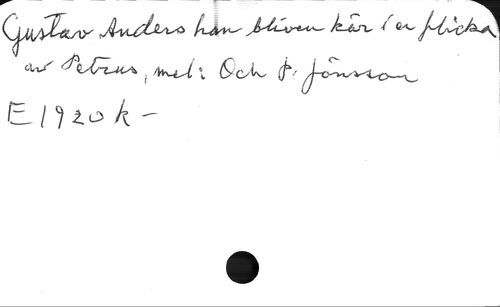 Gustav Anders han bliven kär i en flicka
av Petrus, mel: Och P. Jönsson
E 1920 k -